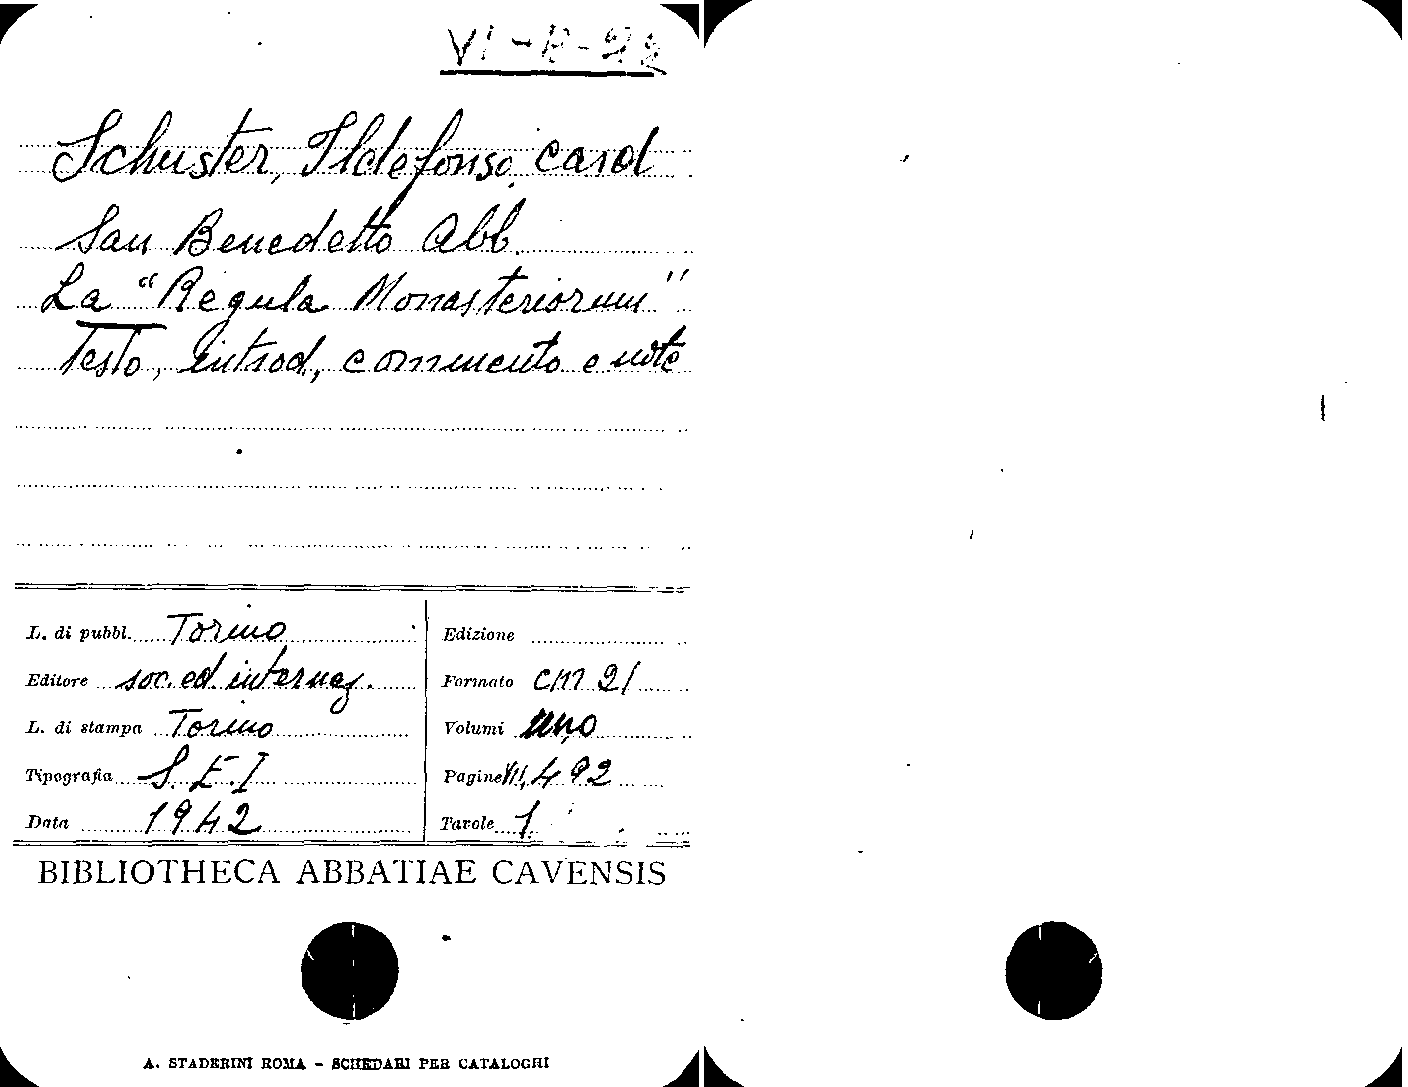 Schuster, Ildefonso card
San Benedetto Abb.
La "Regula Monasteriorum"
Testo, introd., commento e note
L. di pubbl. Torino
Editore soc. ed. internaz.
L. di stampa Torino
Tipografia S. E. I
Data 1942
Edizione
Formato cm 21
Volumi uno
Pagine VIII, 492
Tavole 1
BIBLIOTHECA ABBATIAE CAVENSIS
A. STADERINI ROMA - SCHEDARI PER CATALOGHI